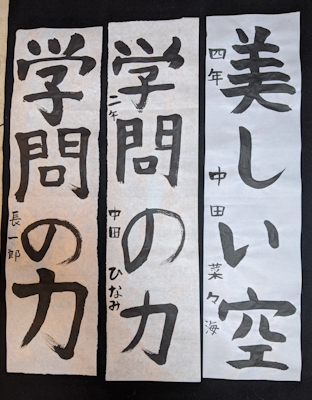 美しい空
四年 中田 菜々海
学問の力
二年 中田 ひなみ
学問の力
長一郎